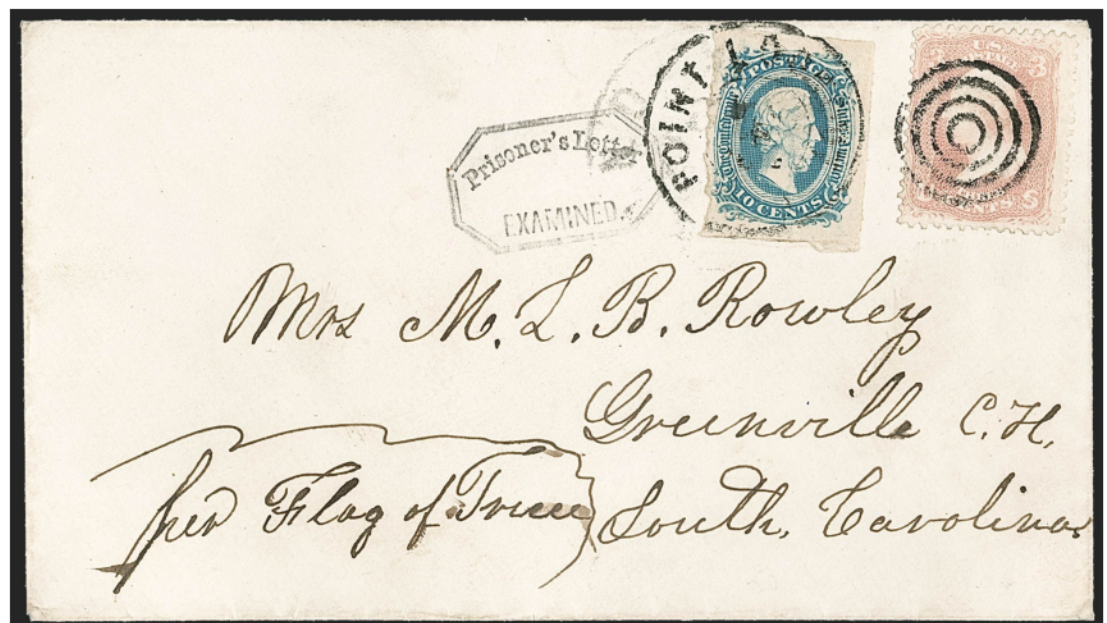 Prisoner's Lette
EXAMINED.
POINT LO
POSTAGE
10 CENTS
U.S.
POSTAGE
3
3
CENTS
Mrs M. L. B. Rowley
Greenville C.H,
South, Carolina
per Flag of Truce